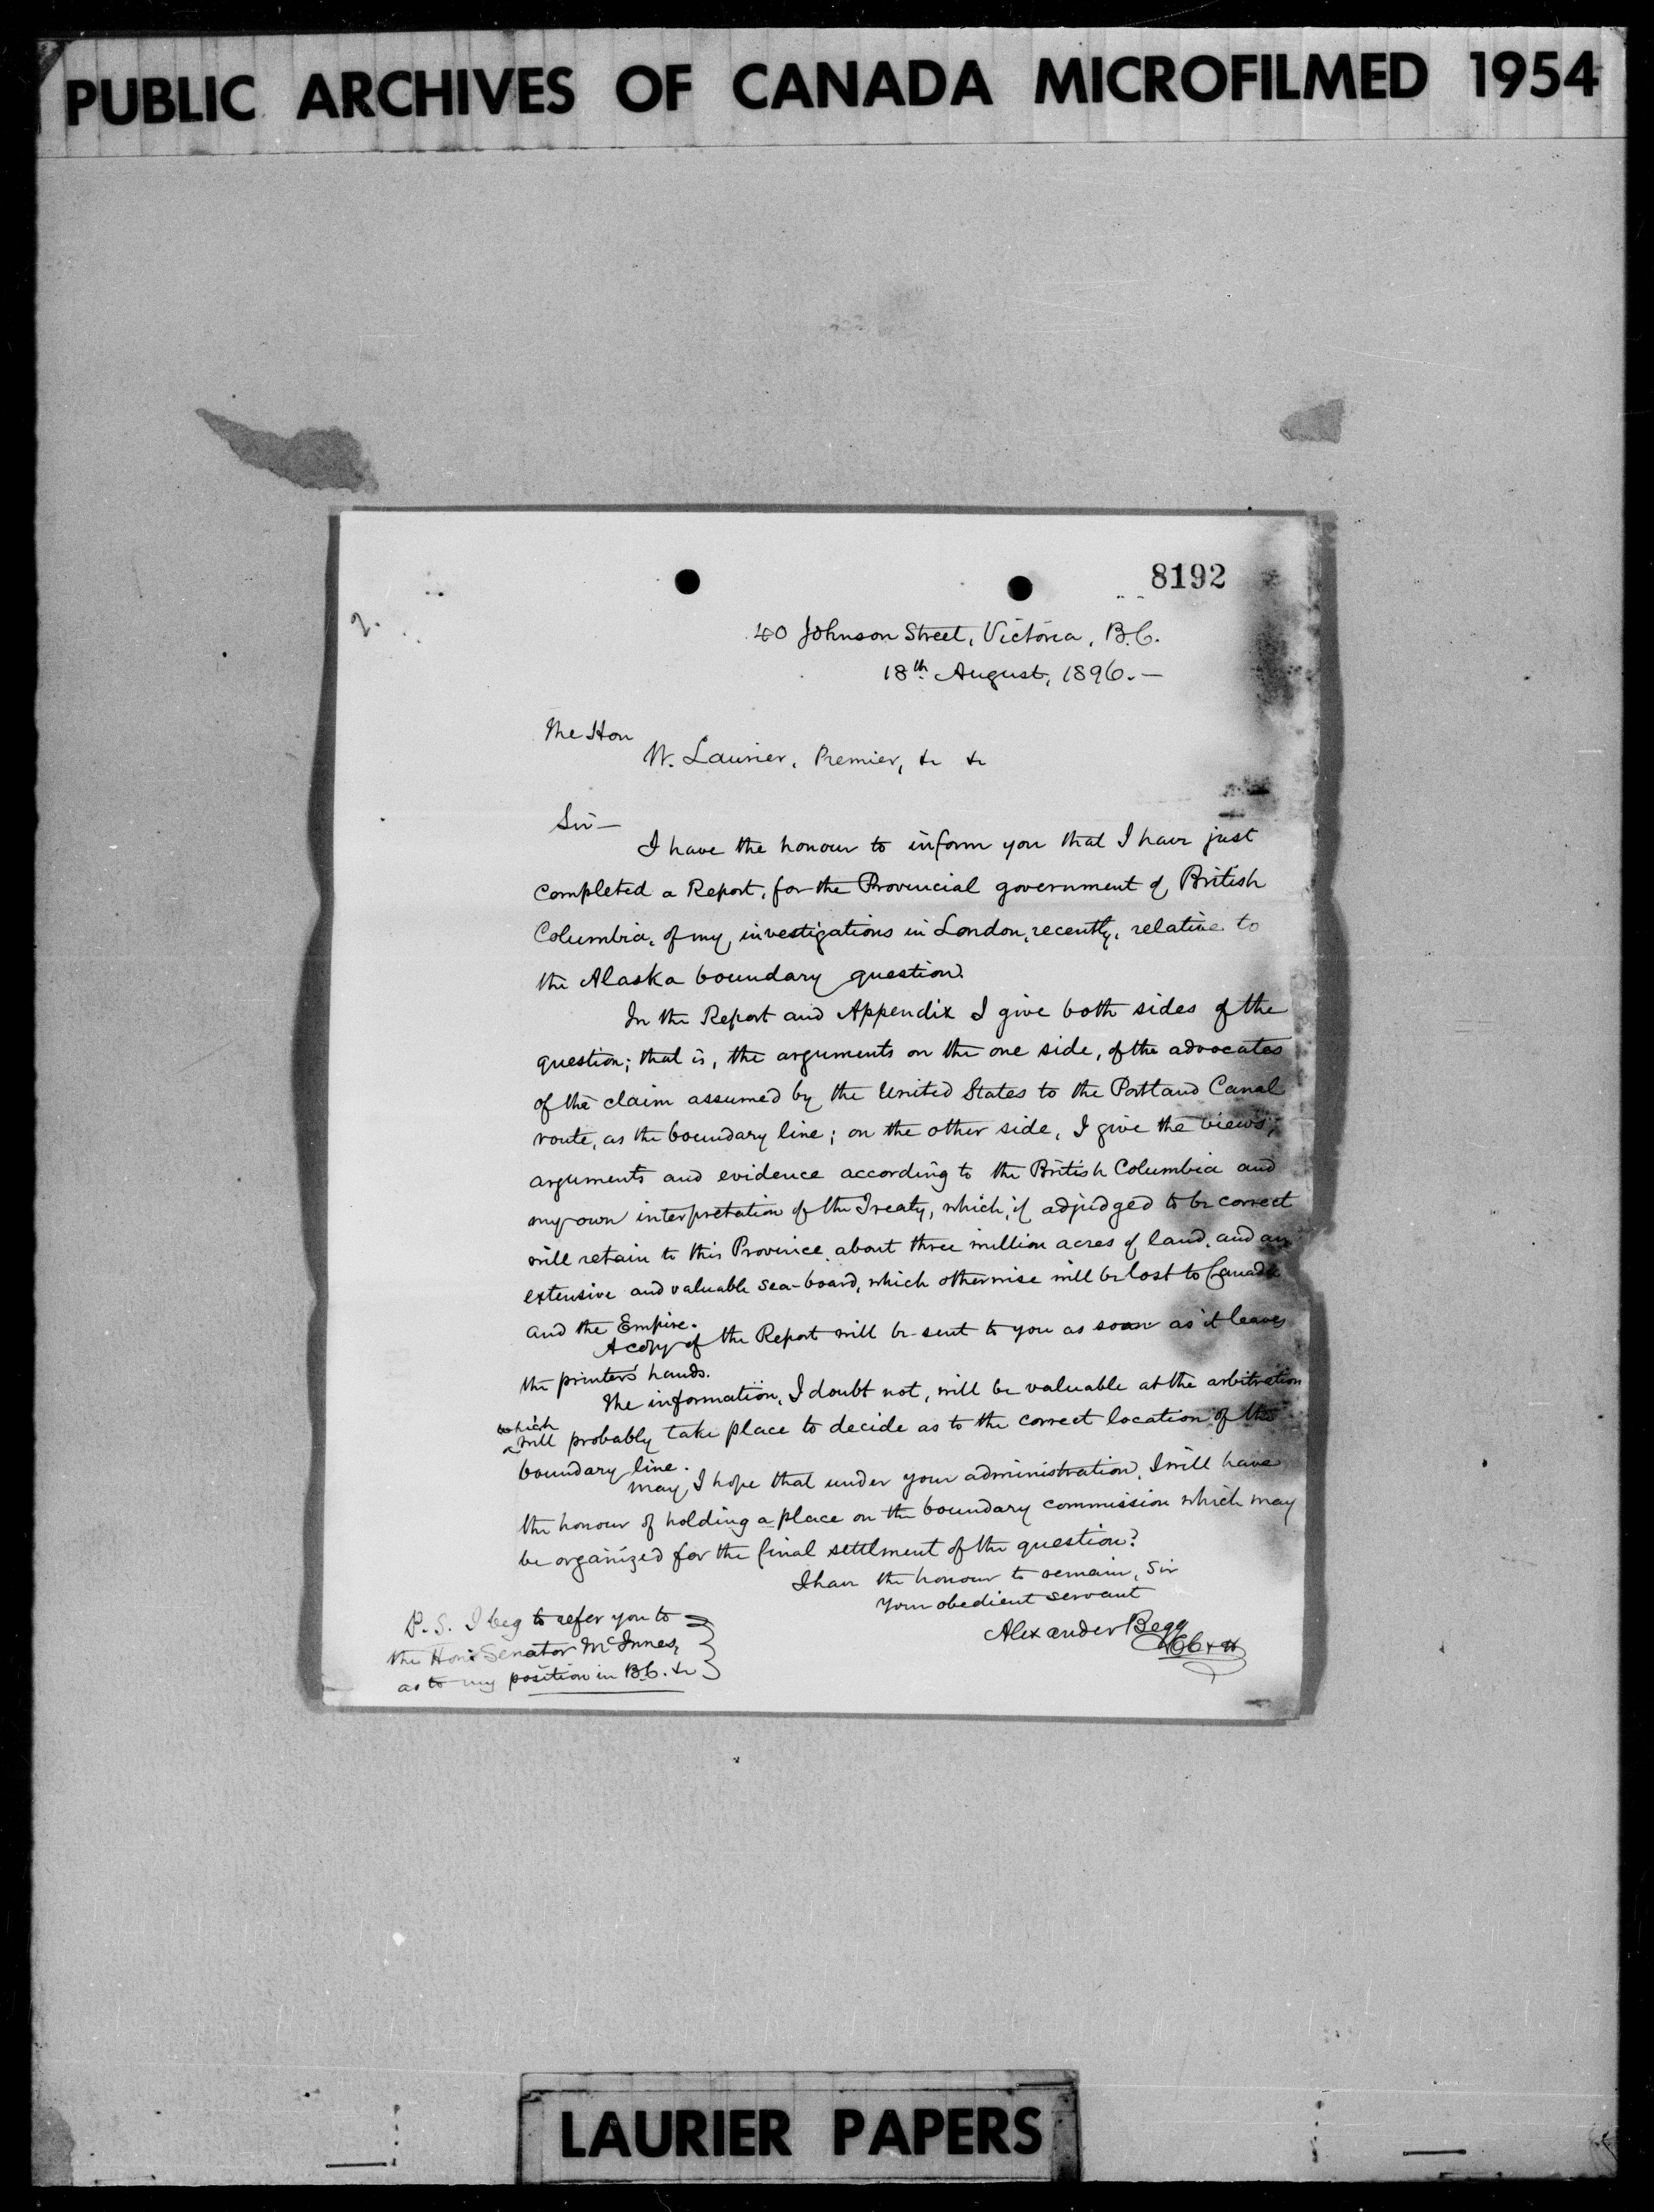 PUBLIC ARCHIVES OF CANADA MICROFILMED 1954
8192
2.
40 Johnson Street, Victoria, B.C.
18th August, 1896.—
The Hon
W. Laurier, Premier, &c &c
Sir—
I have the honour to inform you that I have just
completed a Report, for the Provincial government of British
Columbia, of my investigations in London, recently, relative to
the Alaska boundary question.
In the Report and Appendix I give both sides of the
question; that is, the arguments on the one side, of the advocates
of the claim assumed by the United States to the Portland Canal
route, as the boundary line; on the other side, I give the views,
arguments and evidence according to the British Columbia and
my own interpretation of the Treaty, which, if adjudged to be correct
will retain to this Province about three million acres of land, and an
extensive and valuable sea-board, which otherwise will be lost to Canada
and the Empire.
A copy of the Report will be sent to you as soon as it leaves
the printer's hands.
The information, I doubt not, will be valuable at the arbitration
which
will probably take place to decide as to the correct location of the
boundary line.
May I hope that under your administration, I will have
the honour of holding a place on the boundary commission which may
be organized for the final settlment of the question?
I have the honour to remain, Sir
Your obedient servant
Alexander Begg
P.S. I beg to refer you to
the Hon: Senator McInnes,
as to my position in B.C. &c
LAURIER PAPERS